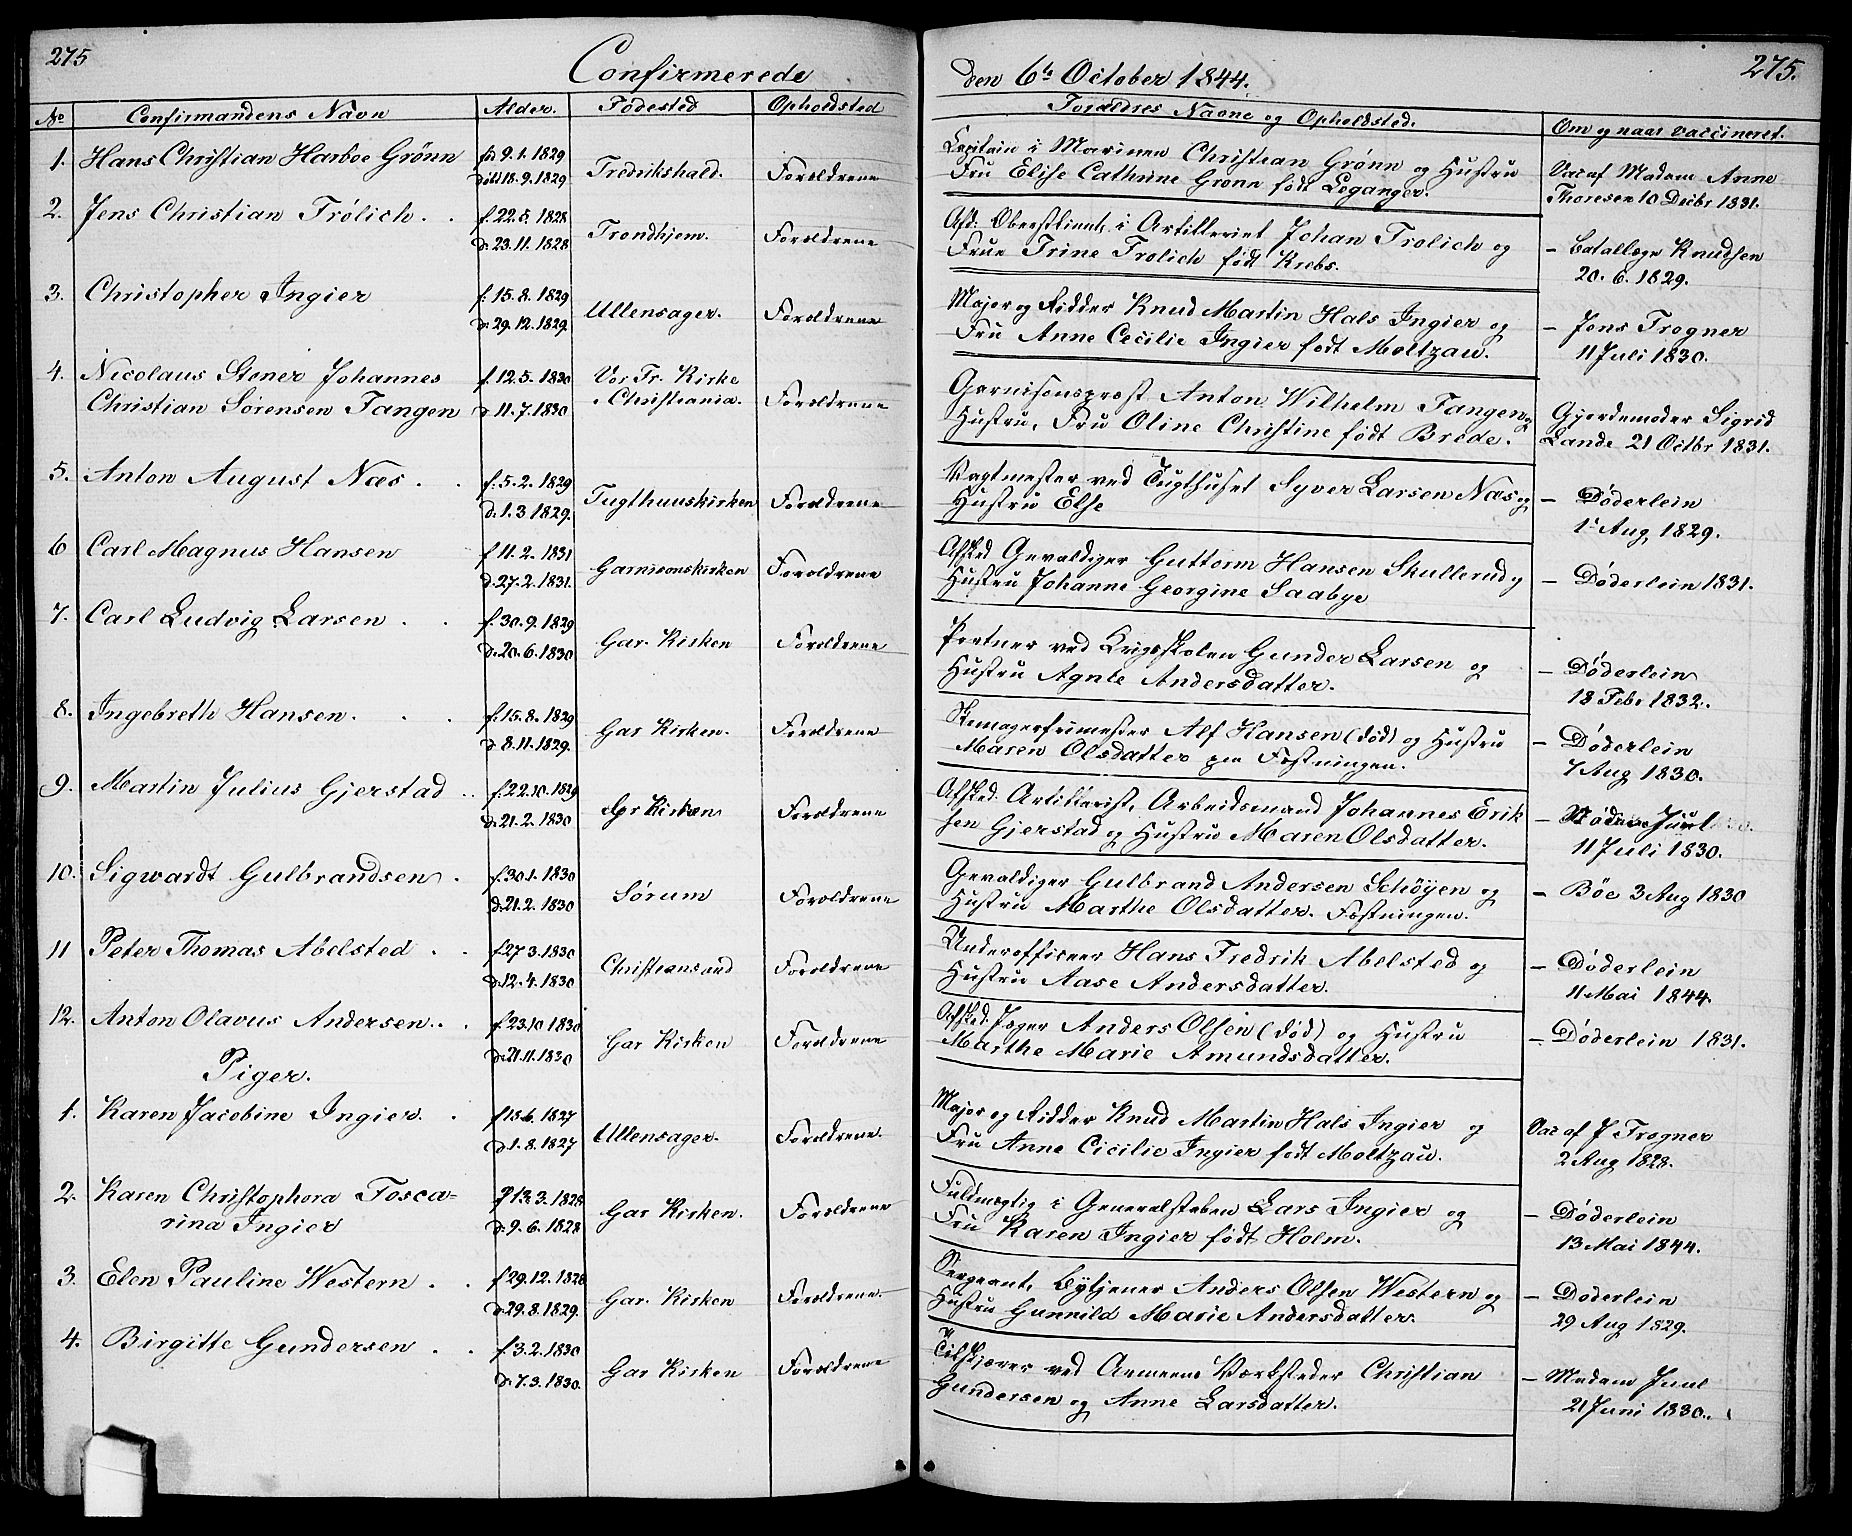 275
Confirmerede
No Confirmandens Navn Alder. Fødested Opholdsted
1. Hans Christian Harboe Grønn f. 9.1.1829 Fredrikshald. Forældrene
døbt 18.9.1829
2. Jens Christian Frølich. f. 22.5.1828 Trondhjem. Forældrene
d. 23.11.1828
3. Christopher Ingier f. 15.8.1829 Ullensager. Forældrene
d. 29.12.1829
4. Nicolaus Stener Johannes f. 12.5.1830 Vor Fr. Kirke
Christian Sørensen Fangen d. 11.7.1830 i Christiania. Forældrene
5. Anton August Næs. f. 5.2.1829 Tugthuuskirken Forældrene
d. 1.3.1829.
6 Carl Magnus Hansen f. 11.2.1831 Garnisonskirken Forældrene
d. 27.2.1831.
7. Carl Ludvig Larsen. f. 30.9.1829 Gar. Kirken Forældrene
d. 20.6.1830
8. Ingebreth Hansen. f. 15.8.1829 Gar Kirken. Forældrene
d. 8.11.1829.
9. Martin Julius Gjerstad f. 22.10.1829 Gr Kirken Forældrene
d. 21.2.1830
10. Sigwardt Gulbrandsen. f. 30.1.1830 Sørum Forældrene
d. 21.2.1830
11 Peter Thomas Abelsted. f. 27.3.1830 Christiansand Forældrene
d. 12.4.1830
12. Anton Olavus Andersen. f. 23.10.1830 Gar Kirken Forældrene
d. 21.11.1830
Piger.
1. Karen Jacobine Ingier. f. 15.6.1827 Ullensager. Forældrene.
d. 1.8.1827
2. Karen Christophora Tosca= f. 13.3.1828 Gar Kirken. Forældrene
rina Ingier d. 9.6.1828
3. Elen Pauline Western. f. 29.12.1828 Gar. Kirken Forældrene.
d. 29.8.1829.
4. Birgitte Gundersen. f. 3.2.1830 Gar Kirken Forældrene
d. 7.3.1830.
den 6te October 1844. 275.
Forældres Navne og Opholdsted. Om og naar vaccineret.
Capitain i Marinen Christian Grønn og Hustru Vac af Madam Anne
Fru Elise Cathrine Grønn født Leganger. Thoresen 10 Decbr 1831.
Afsk: Oberstlieut, i Artilleriet Johan Frølich og – Batallæge Knudsen
Frue Trine Frølich født Krebs. 20.6.1829.
Major og Ridder Knud Martin Hals Ingier og – Jens Trogner
Fru Anne Cecilie Ingier født Moltzau. 11 Juli 1830.
Garnisonsprest Anton Wilhelm Fangen og Gjordemoder Sigrid
Hustru, Fru Oline Christine født Brede. Lande 21 Octbr 1831.
Vagtmester ved Tugthuset Syver Larsen Næs og – Døderlein
Hustru Else 1ste Aug 1829.
Afsked Gevaldiger Guttorm Hansen Skullerud og – Døderlein 1831.
Hustru Johanne Georgine Saabye
Portner ved Krigsskolen Gunder Larsen og – Døderlein
Hustru Agnte Andersdatter. 18 Febr 1832.
Alf Hansen (død) og Hustru – Døderlein
Maren Olsdatter paa Fæstningen. 7 Aug 1830.
Afsked. Artillerist, Arbeidsmand Johannes Erik – Juul
sen Gjerstad og Hustru Maren Olsdatter. 11 Juli 1830.
Gevaldiger Gulbrand Andersen Schøyen og – Bøe 3 Aug 1830
Hustru Marthe Olsdatter. Fæstningen.
Underofficeer Hans Fredrik Abelsted og – Døderlein
Hustru Aase Andersdatter. 11 Mai 1844.
Afsked. Jæger Anders Olsen (død) og Hustru – Døderlein 1831.
Marthe Marie Amundsdatter.
Major og Ridder Knud Martin Hals Ingier og Vac af J Trogner
Fru Anne Cicilie Ingier født Moltzau. 2 Aug 1828.
Fuldmægtig i Generalstaben Lars Ingier og – Døderlein
Fru Karen Ingier født Holm. 13 Mai 1844.
Sergeant, Bytjener Anders Olsen Western og – Døderlein
Hustru Gunnild Marie Andersdatter. 29 Aug 1829.
Tilskjærer ved Armeens Værksteder Christian – Madam Juul
Gundersen og Anne Larsdatter. 21 Juni 1830.